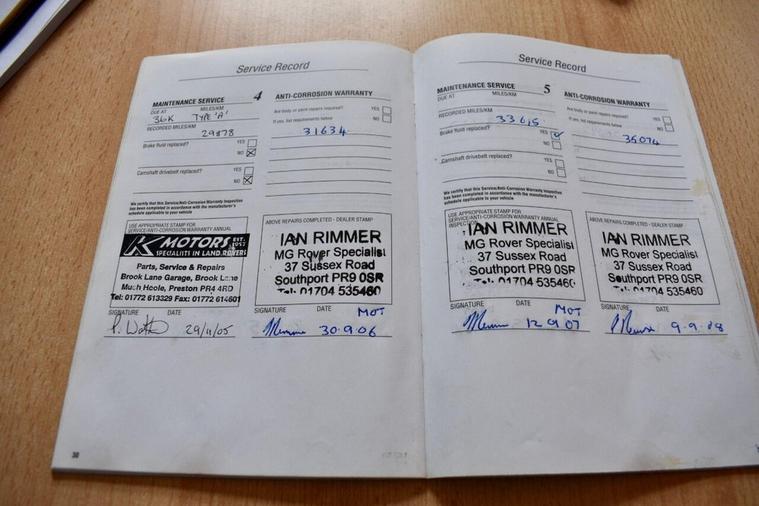 Service Record
MAINTENANCE SERVICE 4
DUE AT MILES/KM
36K TYPE 'A'
RECORDED MILES/KM
29878
Brake fluid replaced? YES
NO
Camshaft drivebelt replaced? YES
NO
We certify that this Service/Anti-Corrosion Warranty Inspection
has been completed in accordance with the manufacturer's
schedule applicable to your vehicle
USE APPROPRIATE STAMP FOR
SERVICE/ANTI-CORROSION WARRANTY ANNUAL
K MOTORS EST. 1952
SPECIALISTS IN LAND ROVERS
Parts, Service & Repairs
Brook Lane Garage, Brook Lane
Much Hoole, Preston PR4 4RD
Tel: 01772 613329 Fax: 01772 614601
SIGNATURE DATE
29/11/05
ANTI-CORROSION WARRANTY
Are body or paint repairs required? YES
If yes, list requirements below NO
31634
ABOVE REPAIRS COMPLETED - DEALER STAMP
IAN RIMMER
MG Rover Specialist
37 Sussex Road
Southport PR9 0SR
Tel: 01704 535460
SIGNATURE DATE MOT
30.9.06
30
Service Record
MAINTENANCE SERVICE 5
DUE AT MILES/KM
RECORDED MILES/KM
33615
Brake fluid replaced? YES
NO
Camshaft drivebelt replaced? YES
NO
We certify that this Service/Anti-Corrosion Warranty Inspection
has been completed in accordance with the manufacturer's
schedule applicable to your vehicle
USE APPROPRIATE STAMP FOR
SERVICE/ANTI-CORROSION WARRANTY ANNUAL
IAN RIMMER
MG Rover Specialist
37 Sussex Road
Southport PR9 0SR
Tel: 01704 535460
SIGNATURE DATE MOT
12 9 07
ANTI-CORROSION WARRANTY
Are body or paint repairs required? YES
If yes, list requirements below NO
35074
ABOVE REPAIRS COMPLETED - DEALER STAMP
IAN RIMMER
MG Rover Specialist
37 Sussex Road
Southport PR9 0SR
Tel: 01704 535460
SIGNATURE DATE
9-9-08